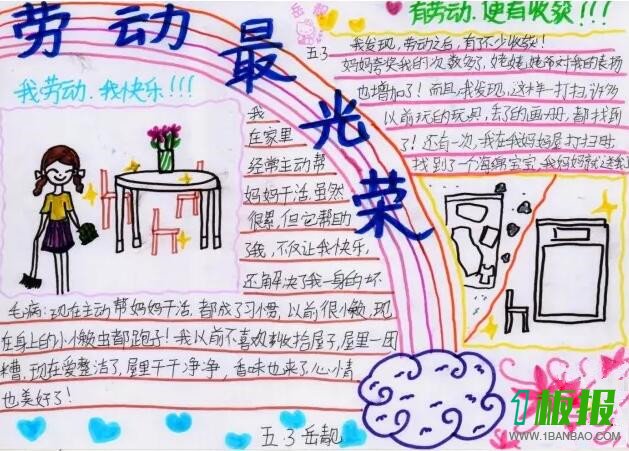 劳动最光荣
我劳动.我快乐!!!
我
在家里
经常主动帮
妈妈干活.虽然
很累,但它帮助
了我,不仅让我快乐,
还解决了我一身的坏
毛病:现在主动帮妈妈干活.都成了习惯,以前很小懒,现
在身上的小懒虫都跑了!我以前不喜欢收拾屋子,屋里一团
糟,现在爱整洁了,屋里干干净净,香味也来了,心情
也美好了!
五.3岳靓
有劳动.便有收获!!!
五.3
我发现,劳动之后,有不少收获!
妈妈夸奖我的次数多了,姥姥,姥爷对我的表扬
也增加了!而且,我发现,这样一打扫,许多
以前玩的玩具,丢了的画册,都找到
了!还有一次,我在我妈妈屋打扫时
找到了一个海绵宝宝,我妈妈就送
1板报
WWW.1BANBAO.COM